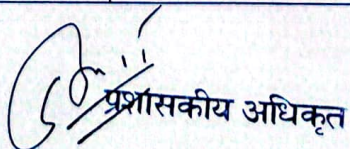 प्रशासकीय अधिकृत